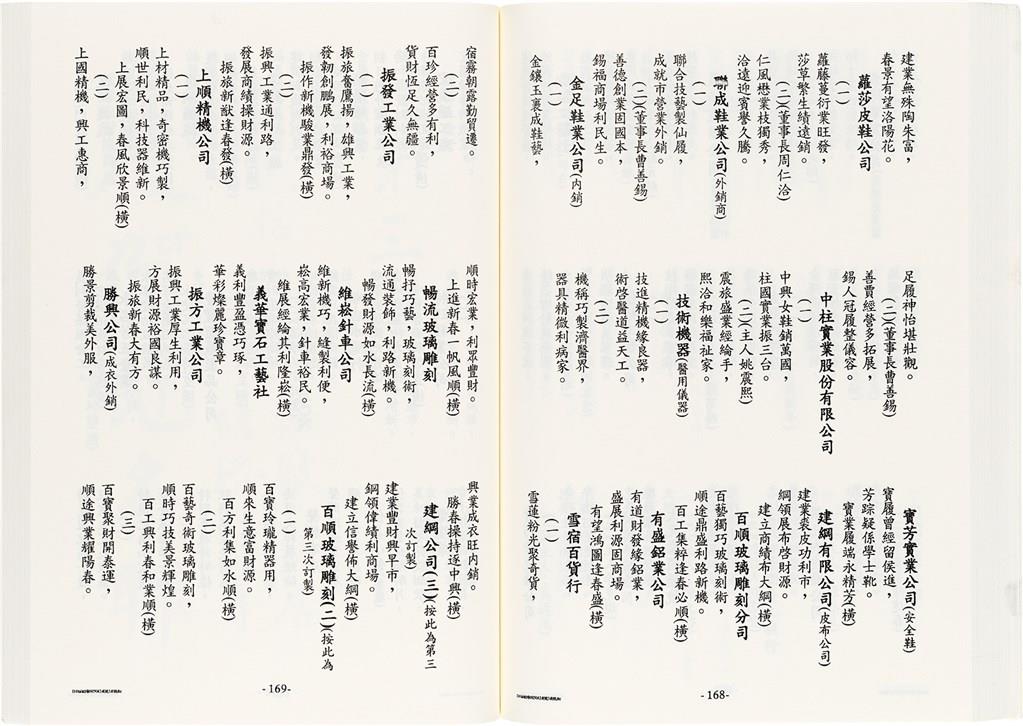 建業無殊陶朱富，
春景有望洛陽花。
蘿莎皮鞋公司
（一）
蘿藤蔓衍業旺發，
莎草繁生績遠銷。
（二）（董事長周仁洽）
仁風懋業枝獨秀，
洽遠迎賓譽久騰。
聯成鞋業公司（外銷商）
（一）
聯合技藝製仙履，
成就市營業外銷。
（二）（董事長曹善錫）
善德創業固國本，
錫福商場利民生。
金足鞋業公司（內銷）
（一）
金鑲玉裹成鞋藝，
足履神怡堪壯觀。
（二）（董事長曹善錫）
善賈經營多拓展，
錫人冠履整儀容。
中柱實業股份有限公司
（一）
中興女鞋銷萬國，
柱國實業振三台。
（二）（主人姚震熙）
震旅盛業經綸手，
熙洽和樂福祉家。
技術機器（醫用儀器）
（一）
技進精機緣良器，
術啓醫道益天工。
（二）
機稱巧製濟醫界，
器具精微利病家。
寶芳實業公司（安全鞋）
寶履曾經留侯進，
芳踪疑係學士靴。
寶業履端永精芳（橫）
建綱有限公司（皮布公司）
建業裘皮功利市，
綱領展布啓財源。
建立商績布大綱（橫）
百順玻璃雕刻分司
百藝巧技玻璃刻術，
順途鼎盛利路新機。
百工集粹逢春必順（橫）
有盛鋁業公司
有道財發緣鋁業，
盛展利源固商場。
有望鴻圖逢春盛（橫）
雪宿百貨行
（一）
雪蓮粉光聚奇貨，
-168-
宿霧朝露勤貿遷。
（二）
百珍經營多有利，
貨財恆足久無疆。
振發工業公司
（一）
振旅奮鷹揚，雄興工業，
發軔創鵬展，利裕商場。
振作新機駿業鼎發（橫）
（二）
振興工業通利路，
發展商績操財源。
振旅新猷逢春發（橫）
上順精機公司
（一）
上材精品，奇密機巧製，
順世利民，科技器維新。
上展宏圖，春風欣景順（橫）
（二）
上國精機，興工惠商，
順時宏業，利眾豐財。
上進新春一帆風順（橫）
暢流玻璃雕刻
暢抒巧藝，玻璃刻術，
流通裝飾，利路新機。
暢發財源如水長流（橫）
維崧針車公司
維新機巧，縫製利便，
崧高宏業，針車裕民。
維展經綸其利隆崧（橫）
義華寶石工藝社
義利豐盈憑巧琢，
華彩燦麗珍寶章。
振方工業公司
振興工業厚生利用，
方展財源裕國良謀。
振旅新春大有方。
勝興公司（成衣外銷）
勝景剪裁美外服，
興業成衣旺內銷。
勝春操持逐中興（橫）
建綱公司（三）（按此為第三
次訂製）
建業豐財興早市，
鋼領偉績利商場。
建立信譽佈大綱（橫）
百順玻璃雕刻（二）（按此為
第三次訂製）
（一）
百寶玲瓏精器用，
順來生意富財源。
百方利集如水順（橫）
（二）
百藝奇術玻璃雕刻，
順時巧技美景輝煌。
百工興利春和業順（橫）
（三）
百寶聚財開泰運，
順途興業耀陽春。
-169-